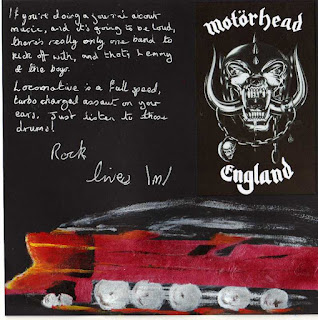 If you're doing a journal about
music, and it's going to be loud,
there's really only one band to
kick off with, and that's Lemmy
& the boys.
Locomotive is a full speed,
turbo charged assault on your
ears. Just listen to those
drums!
Rock
lives \m/
motörhead
England